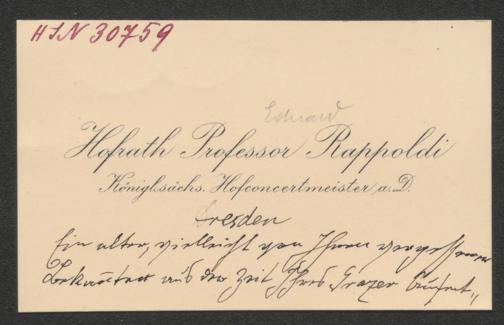 HIN 30759
Eduard
Hofrath Professor Rappoldi
Königl. sächs. Hofconcertmeister a. D.
Dresden
Ein alter, vielleicht von Ihnen vergessener
Bekannter aus der Zeit Ihres Grazer